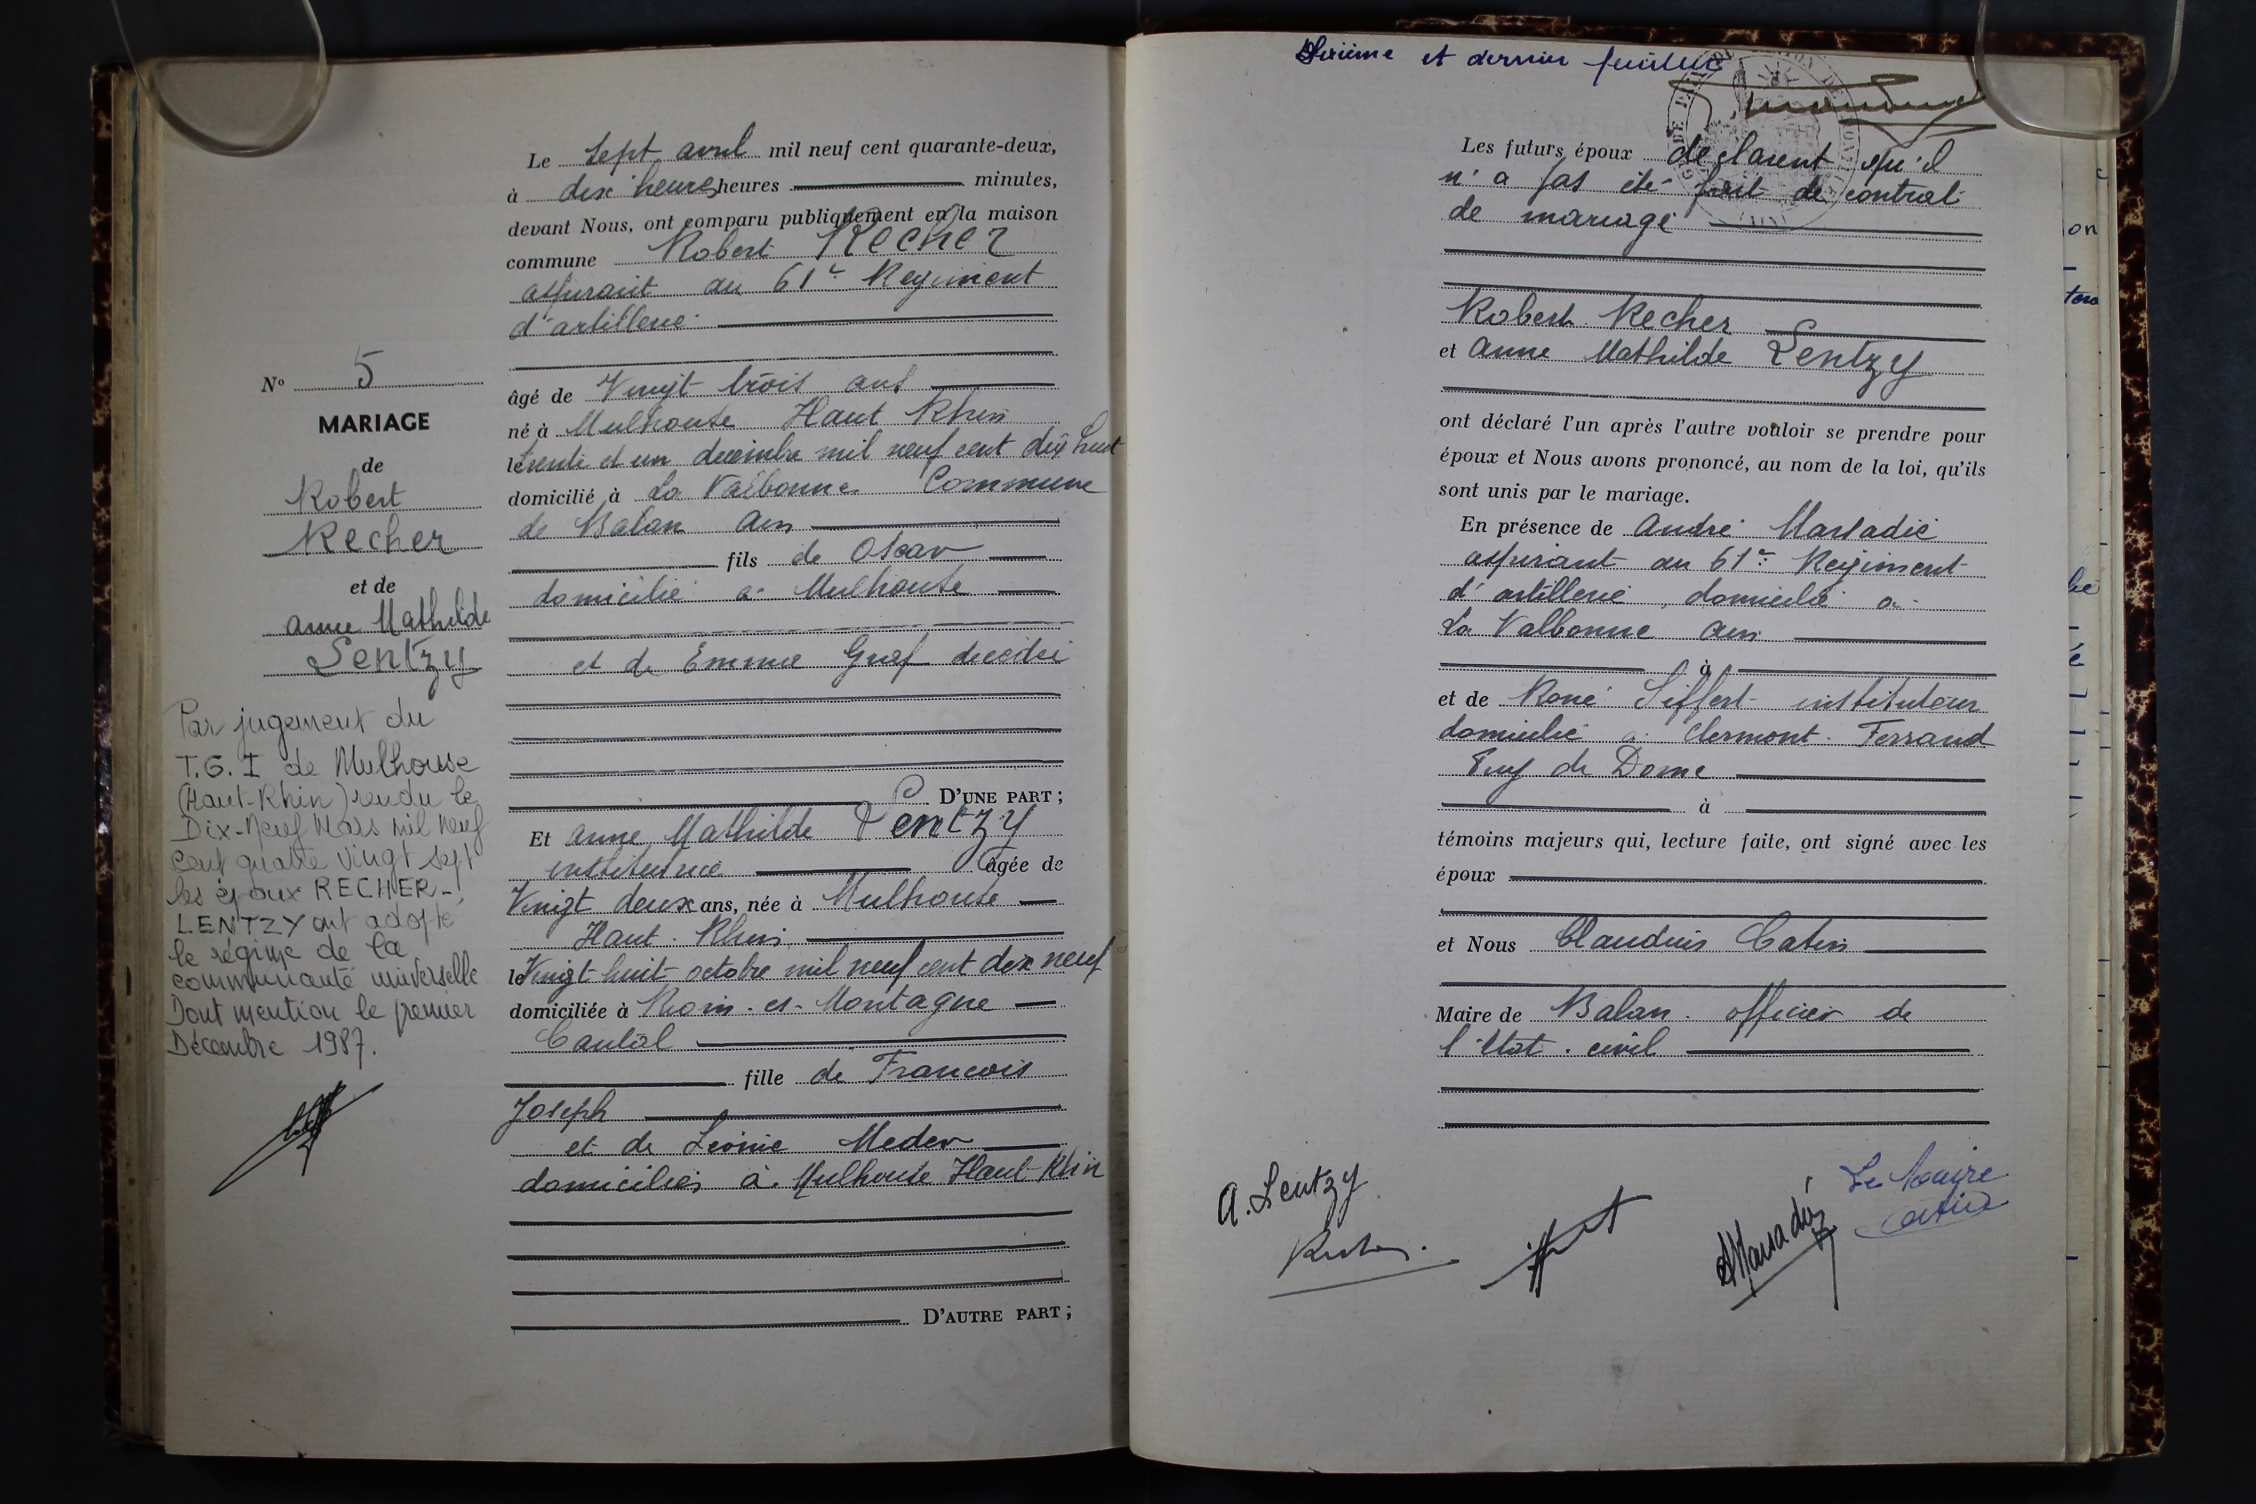 N° 5
MARIAGE
de
Robert
Recher
et de
Anne Mathilde
Lentzy
Par jugement du
T.G.I de Mulhouse
(Haut-Rhin) rendu le
Dix-Neuf Mars mil neuf
cent quatre vingt sept
les époux RECHER-
LENTZY ont adopté
le régime de la
communauté universelle
Dont mention le premier
Décembre 1987.
Le sept avril mil neuf cent quarante-deux,
à dix heures heures minutes,
devant Nous, ont comparu publiquement en la maison
commune Robert Recher
aspirant au 61e Regiment
d'artillerie
âgé de Vingt trois ans
né à Mulhouse Haut Rhin
le trente et un decembre mil neuf cent dix huit
domicilié à La Valbonne Commune
de Balan Ain
fils de Oscar
domicilié à Mulhouse
et de Emma Graf decédée
D'UNE PART ;
Et Anne Mathilde Lentzy
institutrice âgée de
Vingt deux ans, née à Mulhouse
Haut-Rhin
le Vingt-huit octobre mil neuf cent dix neuf
domiciliée à Riom-es-Montagne
Cantal
fille de Francois
Joseph
et de Léonie Meder
domiciliés à Mulhouse Haut-Rhin
D'AUTRE PART ;
et dernier feuillet
Les futurs époux declarent qu'il
n'a pas été fait de contrat
de mariage
Robert Recher
et Anne Mathilde Lentzy
ont déclaré l'un après l'autre vouloir se prendre pour
époux et Nous avons prononcé, au nom de la loi, qu'ils
sont unis par le mariage.
En présence de André Marsadié
aspirant au 61e Regiment
d'artillerie, domicilié à
La Valbonne Ain
à
et de René Siffert instituteur
domicilié à Clermont-Ferrand
Puy de Dome
à
témoins majeurs qui, lecture faite, ont signé avec les
époux
et Nous Claudius Catin
Maire de Balan officier de
l'état-civil
A. Lentzy
Recher
A Marsadié
Le Maire
Catin